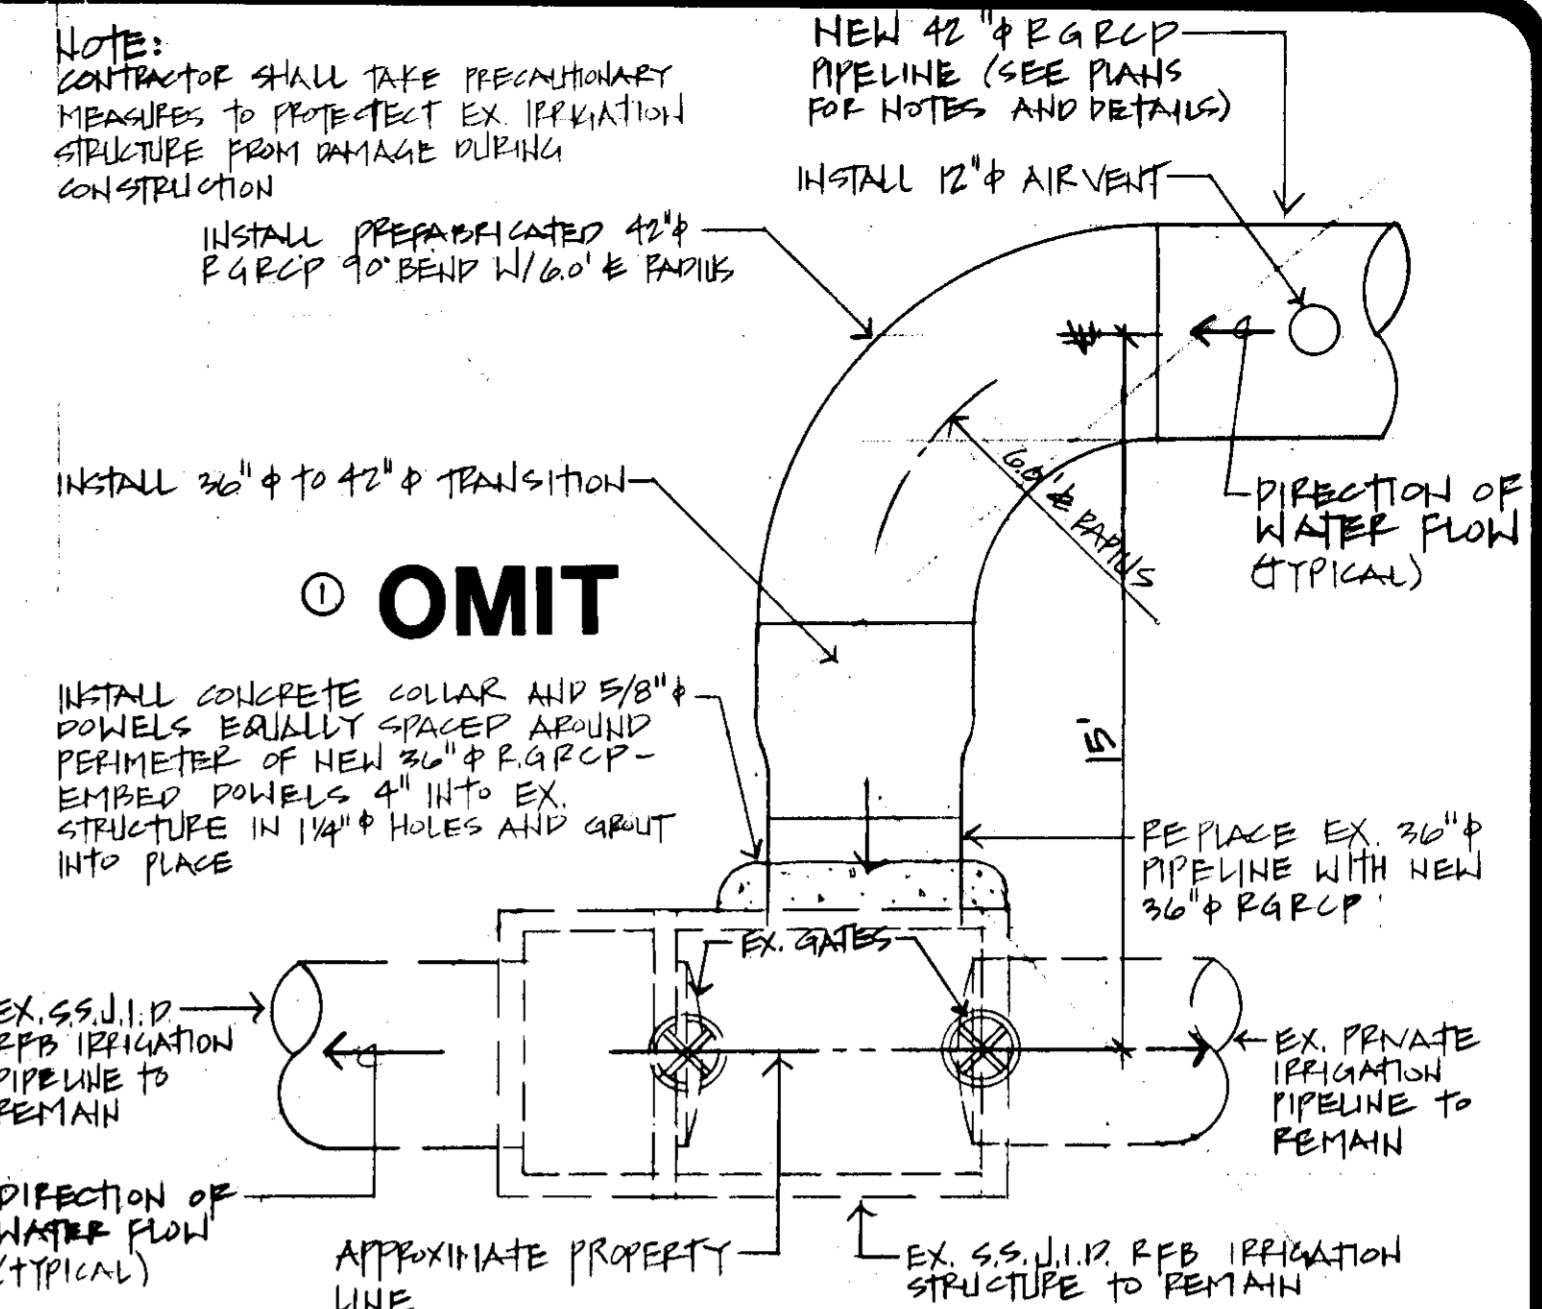 NOTE:
CONTRACTOR SHALL TAKE PRECAUTIONARY
MEASURES TO PROTECTECT EX. IRRIGATION
STRUCTURE FROM DAMAGE DURING
CONSTRUCTION
NEW 42"φ RGRCP
PIPELINE (SEE PLANS
FOR NOTES AND DETAILS)
INSTALL 12"φ AIR VENT
INSTALL PREFABRICATED 42"φ
RGRCP 90° BEND W/6.0' ℄ RADIUS
INSTALL 36"φ TO 42"φ TRANSITION
6.0' ℄ RADIUS
DIRECTION OF
WATER FLOW
(TYPICAL)
① OMIT
INSTALL CONCRETE COLLAR AND 5/8"φ
DOWELS EQUALLY SPACED AROUND
PERIMETER OF NEW 36"φ R.G.RCP-
EMBED DOWELS 4" INTO EX.
STRUCTURE IN 1 1/4"φ HOLES AND GROUT
INTO PLACE
15'
REPLACE EX. 36"φ
PIPELINE WITH NEW
36"φ RGRCP
EX. GATES
EX. S.S.J.I.D.
RFB IRRIGATION
PIPELINE TO
REMAIN
EX. PRIVATE
IRRIGATION
PIPELINE TO
REMAIN
DIRECTION OF
WATER FLOW
(TYPICAL)
APPROXIMATE PROPERTY
LINE
EX. S.S.J.I.D. RFB IRRIGATION
STRUCTURE TO REMAIN